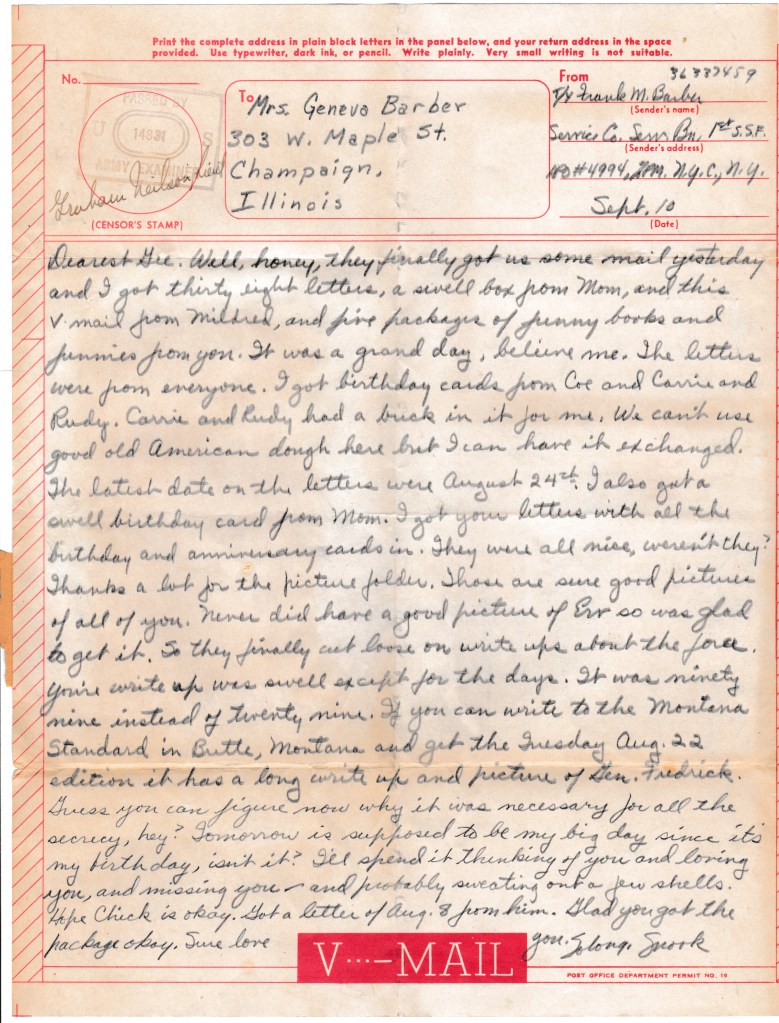 Print the complete address in plain block letters in the panel below, and your return address in the space
provided. Use typewriter, dark ink, or pencil. Write plainly. Very small writing is not suitable.
No.
PASSED BY
U 14831 S
ARMY EXAMINER
(CENSOR'S STAMP)
To
Mrs. Geneva Barber
303 W. Maple St.
Champaign,
Illinois
From
36337459
Frank M. Barber
(Sender's name)
Service Co. Serv Bn. 1st S.S.F.
(Sender's address)
APO #4994, P.M. N.Y.C., N.Y.
Sept. 10
(Date)
Dearest Gee. Well, honey, they finally got us some mail yesterday
and I got thirty eight letters, a swell box from Mom, and this
V-mail from Mildred, and five packages of funny books and
funnies from you. It was a grand day, believe me. The letters
were from everyone. I got birthday cards from Coe and Carrie and
Rudy. Carrie and Rudy had a buck in it for me. We can't use
good old American dough here but I can have it exchanged.
The latest date on the letters were August 24th. I also got a
swell birthday card from Mom. I got your letters with all the
birthday and anniversary cards in. They were all nice, weren't they?
Thanks a lot for the picture folder. Those are sure good pictures
of all of you. Never did have a good picture of Erv so was glad
to get it. So they finally cut loose on write ups about the force.
You're write up was swell except for the days. It was ninety
nine instead of twenty nine. If you can write to the Montana
Standard in Butte, Montana and get the Tuesday Aug. 22
edition it has a long write up and picture of Gen. Fredrick.
Guess you can figure now why it was necessary for all the
secrecy, hey? Tomorrow is supposed to be my big day since it's
my birthday, isn't it? I'll spend it thinking of you and loving
you, and missing you - and probably sweating out a few shells.
Hope Chick is okay. Got a letter of Aug. 8 from him. Glad you got the
package okay. Sure love you. Solong. Snook
V···—MAIL
POST OFFICE DEPARTMENT PERMIT NO. 19